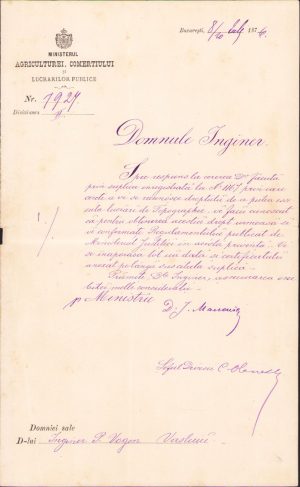 Bucuresci, 8/20 Iuly 187
MINISTERUL
AGRICULTUREI, COMERTIULUI
ȘI
LUCRARILOR PUBLICE
Nr. 7927
Divisiunea
Domnule Inginer.
Spre respuns la cererea Dv facuta
prin suplica inregistrata la No 1867 prin care
cereti a vi se recunosce dreptulu de a putea
lucrari de Topografie, ve facu cunoscut
că pentru obtinerea acestui dreptu urmeaza să
vĕ conformati Regulamentului publicat de
Ministerul Justitiei in acesta privinta. Vi
se inapoiaza tot ua data si certificatulu
anexat pe langa disa suplica.
Primiti, Dle Inginer, asicurarea osebitei
melle consideratii.
p. Ministru
Sefulu Divisiei C.
Domniei sale
D-lui Inginer P. Vagon Vasluiu